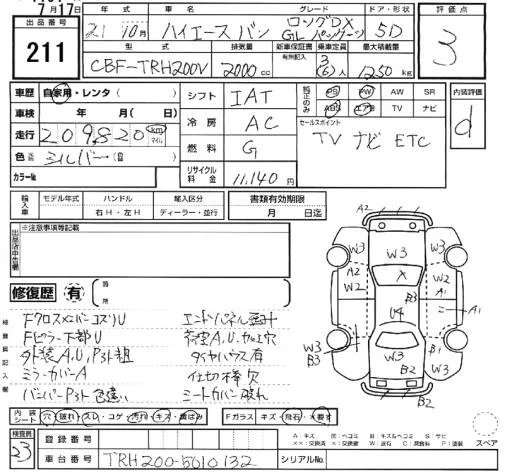 7月17日
出品番号
211
年 式 車 名 グレード ドア・形状
21年 10月 ハイエース バン ロングDX GLパッケージ 5D
型 式 排気量 新車保証書 乗車定員 最大積載量
有無記入
CBF-TRH200V 2000cc 3(6)人 1250kg
評価点
3
車歴 自家用・レンタ( )
車検 年 月( )
走行 209820 km マイル
色 シルバー
カラーNo
シフト IAT
冷房 AC
燃料 G
リサイクル料金 11,140円
純正のみ PS PW AW SR
ABS エアB TV ナビ
セールスポイント
TV ナビ ETC
内装評価
d
輸入車 モデル年式 ハンドル 輸入区分
年 右H・左H ディーラー・並行
書類有効期限
月 日迄
出品店申告欄
※注意事項等記載
修復歴 有
箇所
検査員記入欄
FクロスメンバーコスリU エンドパネル
Fピラー下部U 荷室A,U,加工穴
外装A,U,Pスト粗 タイヤハウス有
ミラーカバーA 仕切棒欠
バンパーPスト色違い シートカバー破れ
A2 W3 W3 A1
A2 W3 X B3 B3 A1
W2 U4
W3 B3 W3 B1 W3
B2 B2
内装シート 穴・破れ・スレ・コゲ 汚れ・キズ・黄ばみ Fガラス キズ・飛石・X要す
A:キズ U:ヘコミ B:キズ&ヘコミ S:サビ
XX:交換済 X:要交換 W:波有 C:腐食有 P:塗装
スペア
検査員
23
登録番号
車台番号 TRH200-5010132 シリアルNo.